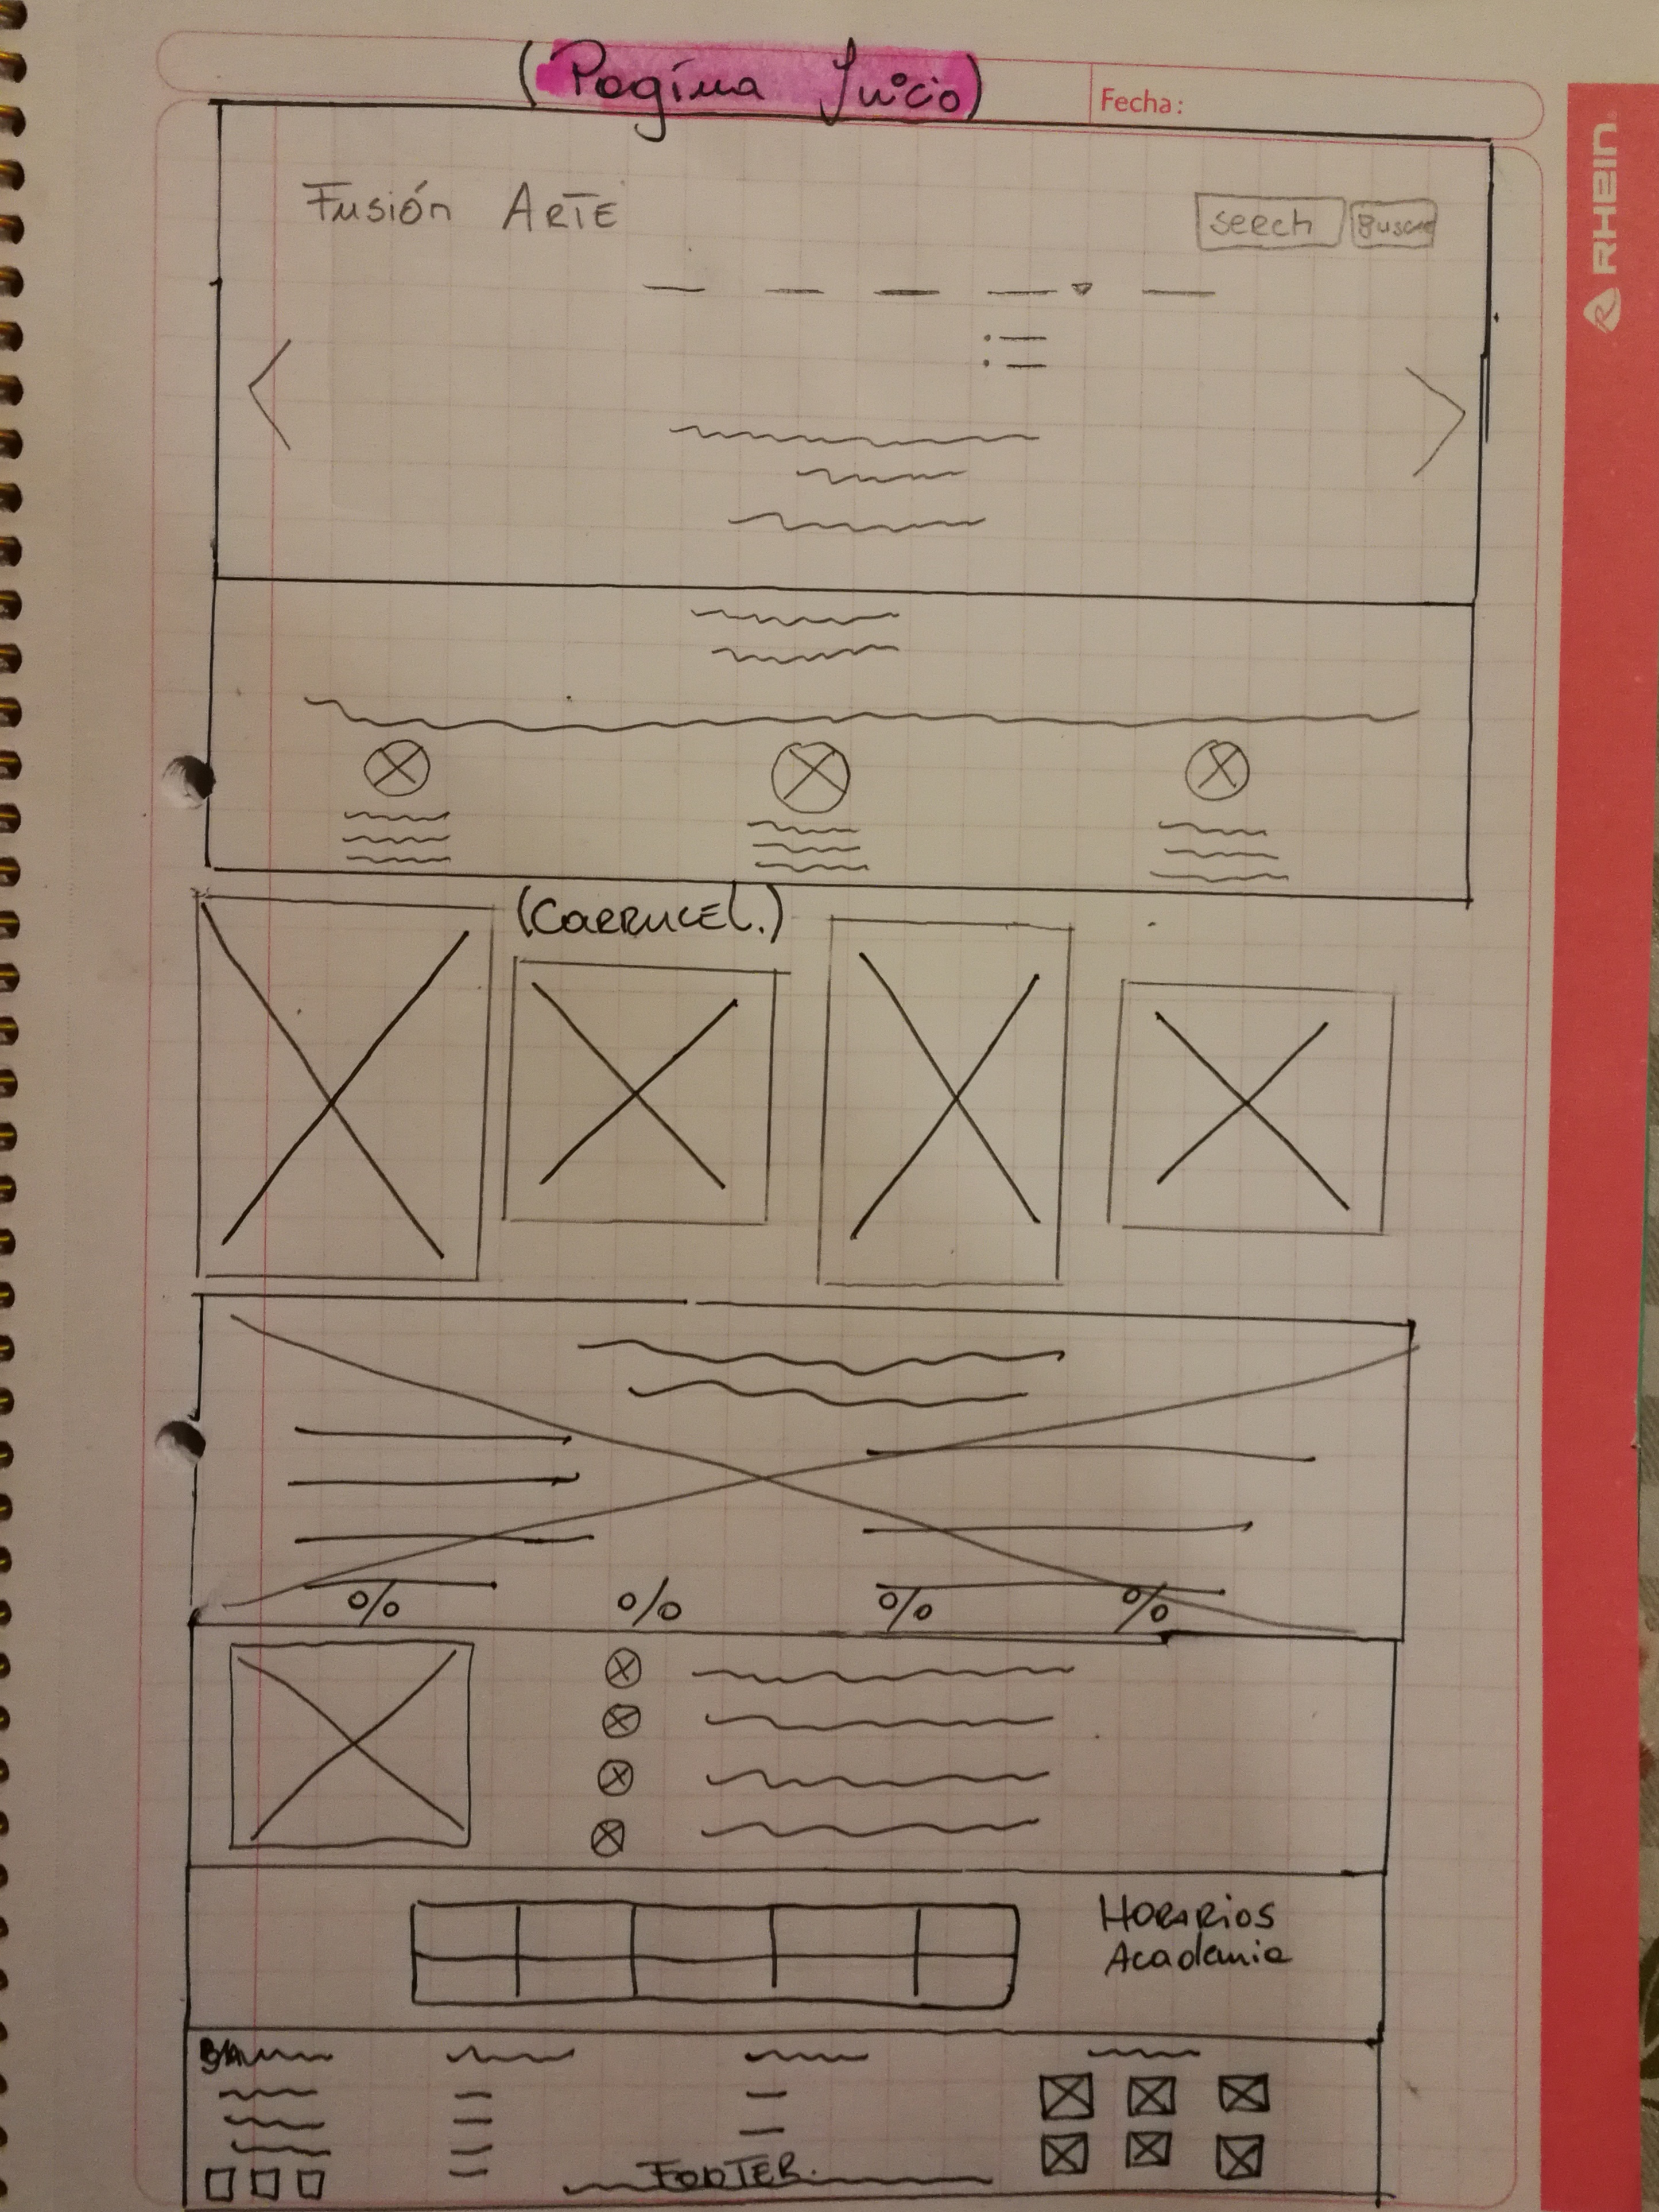 (Pagína Inicio)
Fecha:
RHEIN
Fusión ARTE
seech
Buscar
(CARRUCEL.)
% % % %
HORARIOS
Academia
FOOTER.